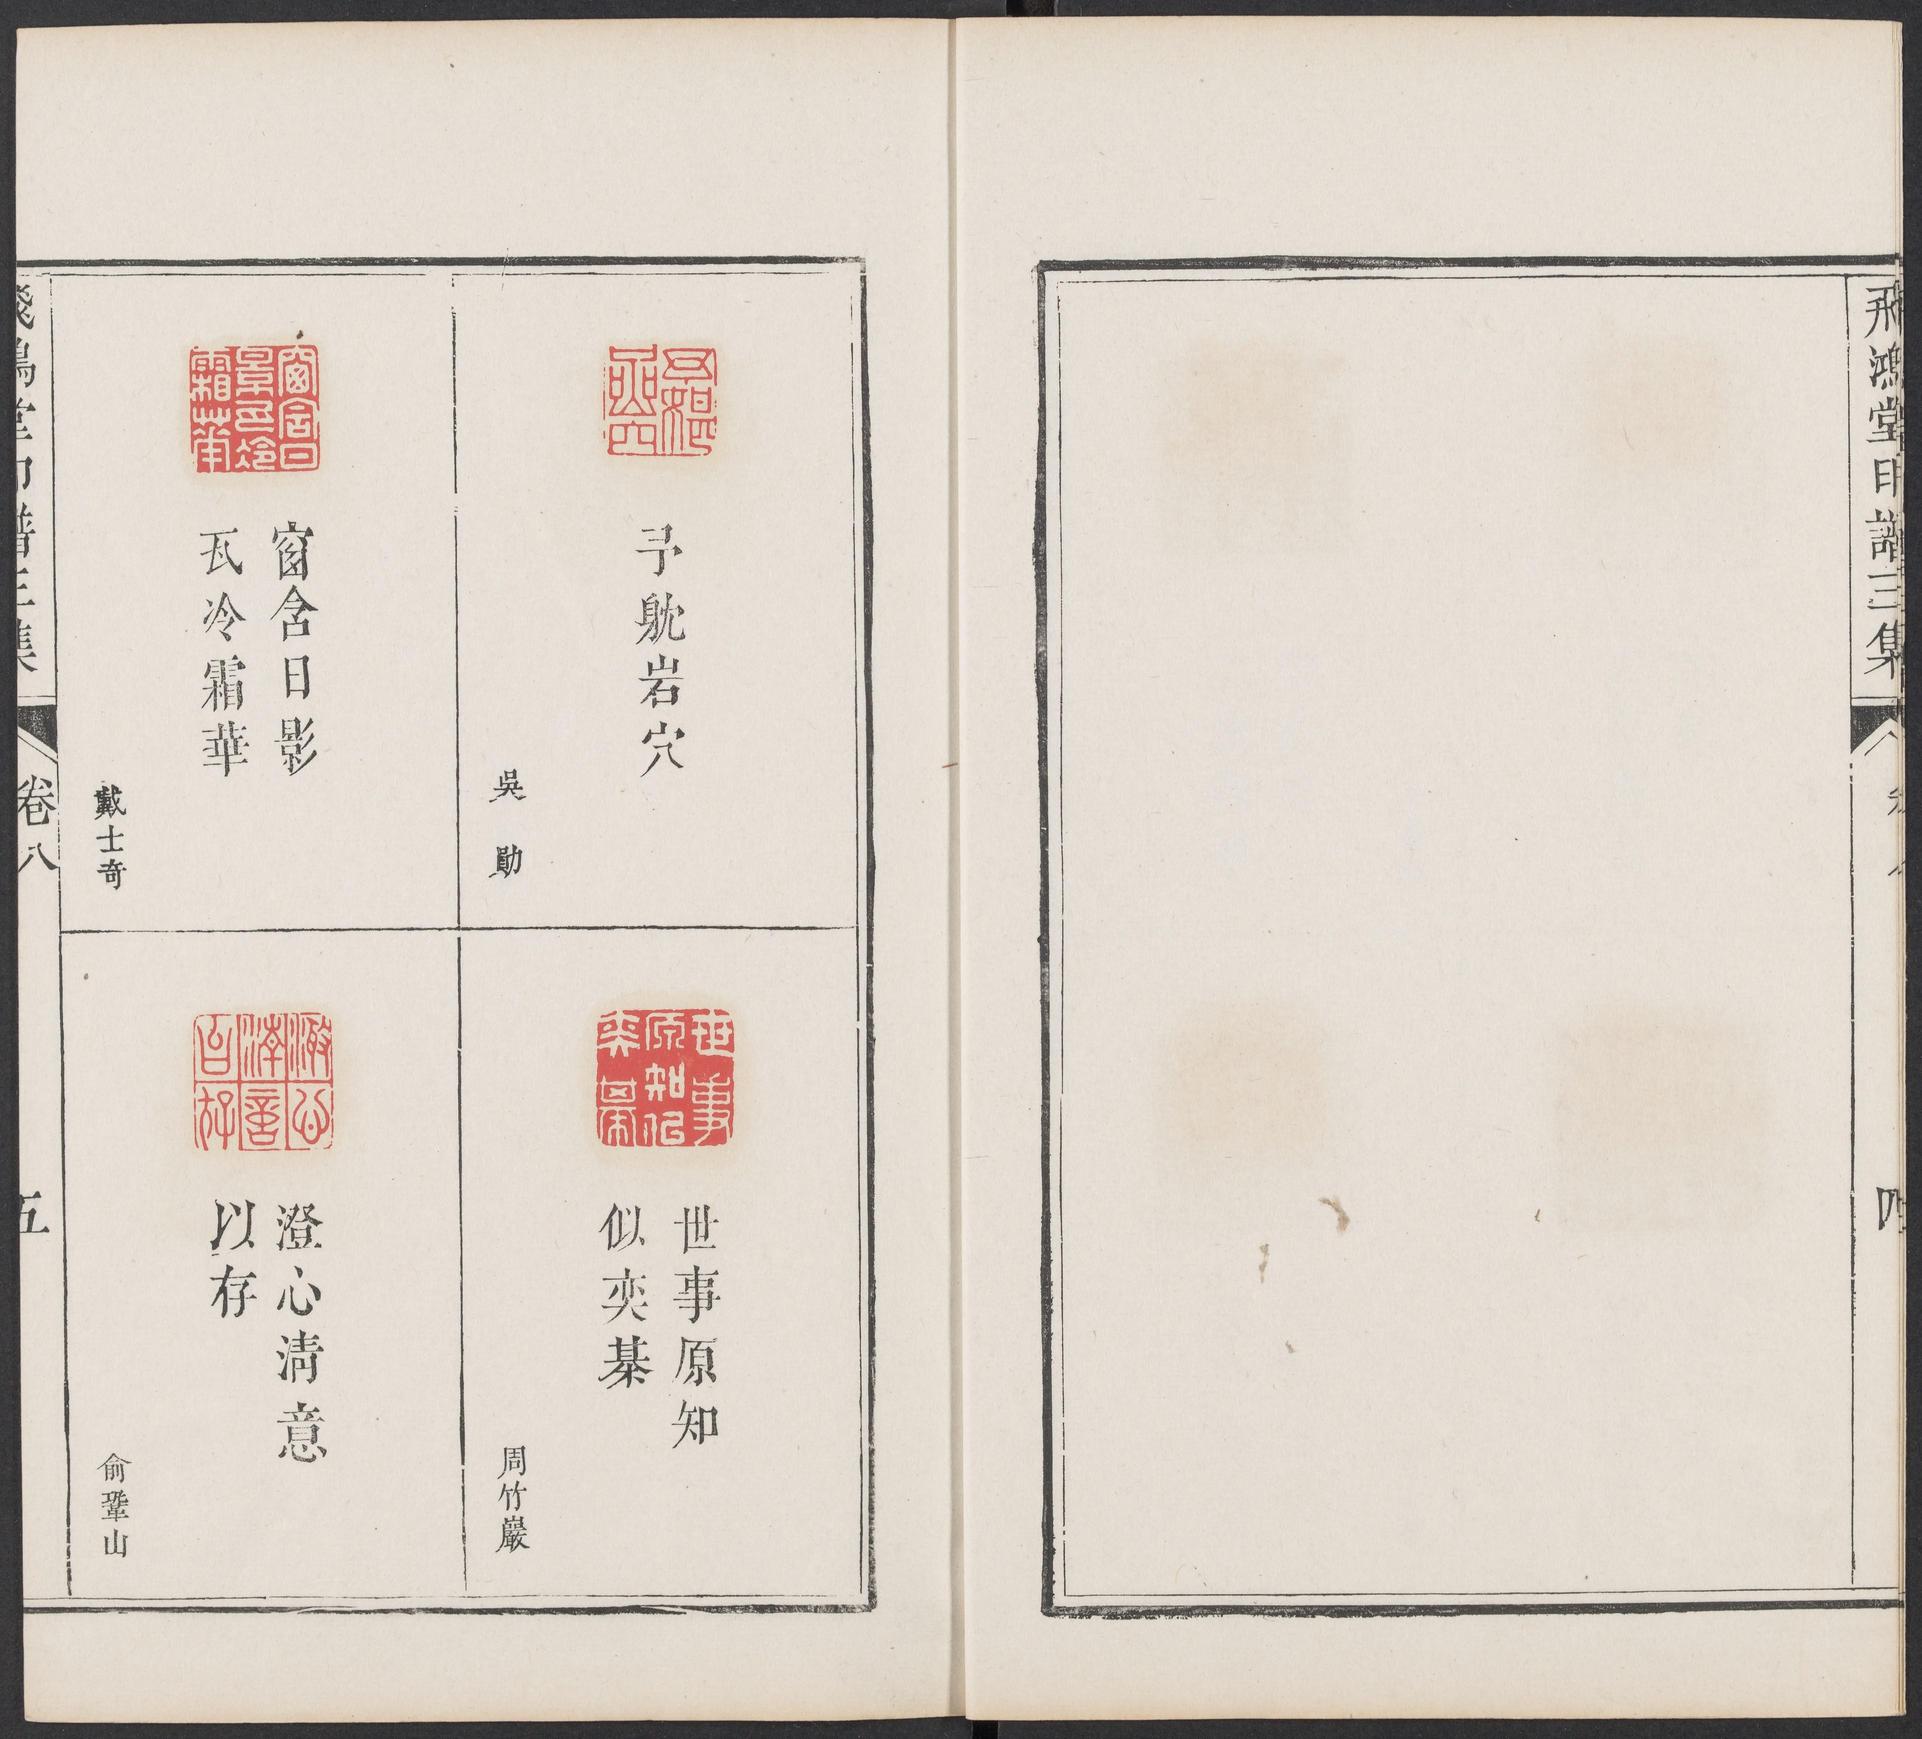 飛鴻堂印譜三集
四
予躭岩穴
吳勛
世事原知
似奕棊
周竹巖
窗含日影
瓦冷霜華
戴士奇
澄心清意
以存
俞鞏山
飛鴻堂印譜三集
卷八
五